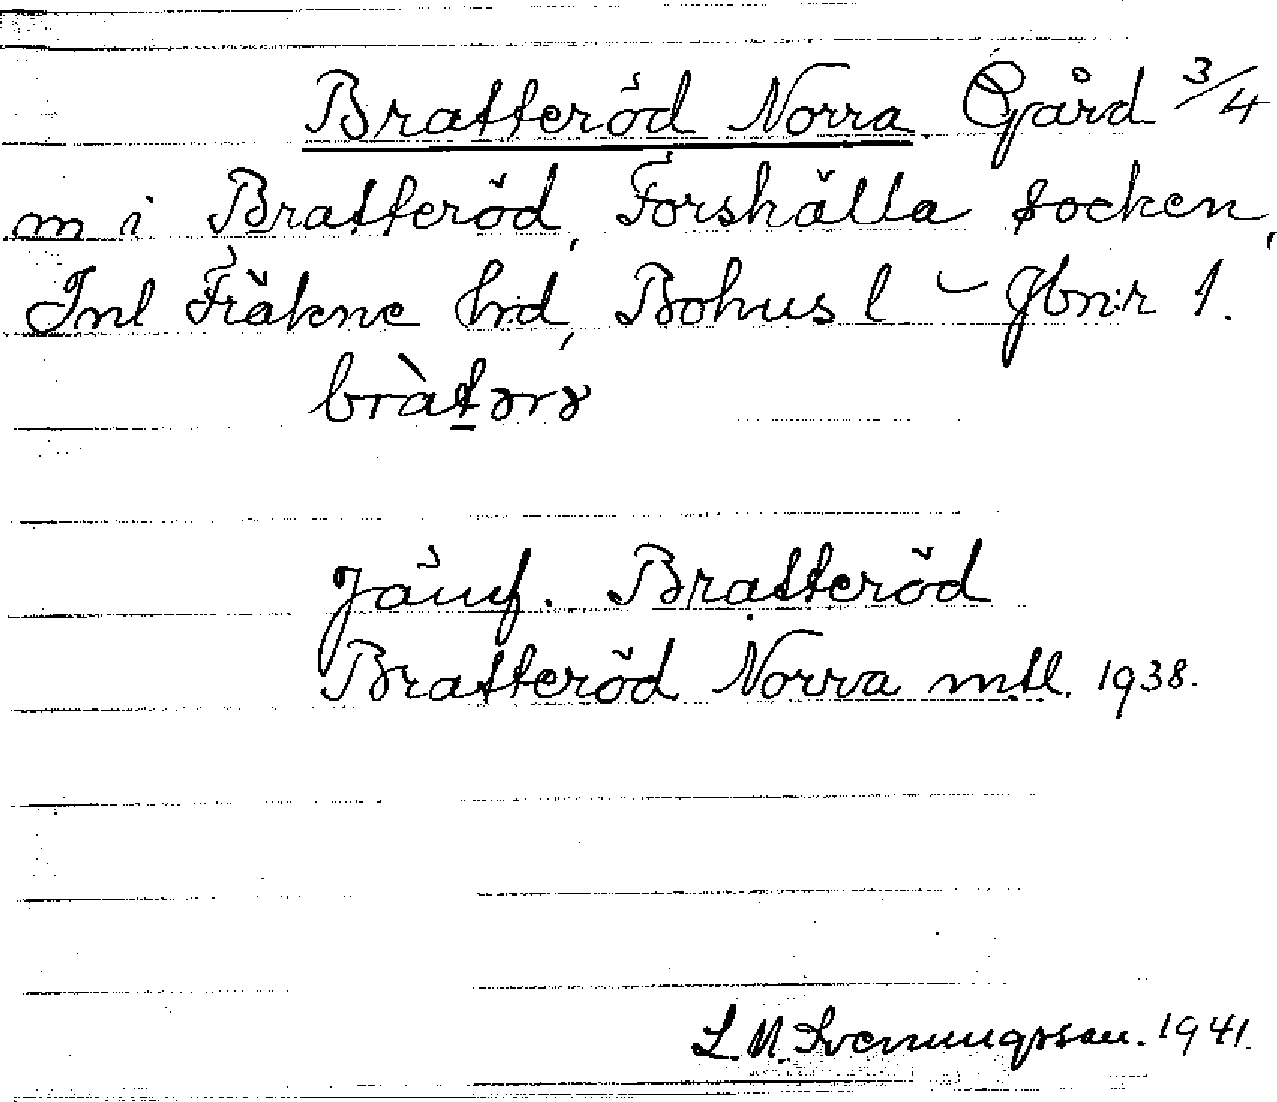 Bratteröd Norra. Gård 3/4
m i Bratteröd, Forshälla socken,
Inl Fräkne hrd, Bohus l – Jbn:r 1.
bràtərɤ
Jämf. Bratteröd
Bratteröd Norra mtl. 1938.
L. M. Svenungsson. 1941.